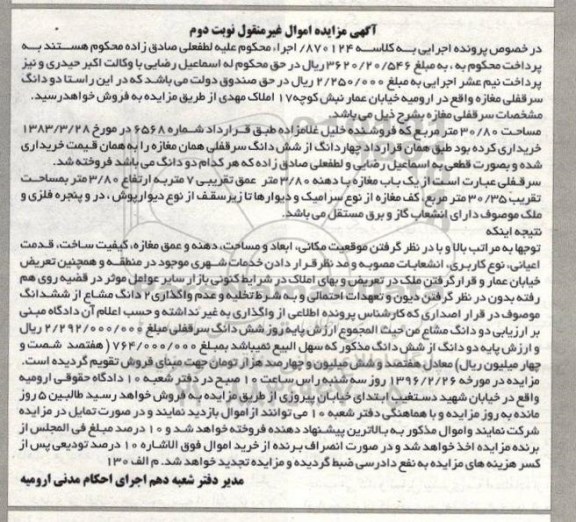 آگهی مزایده اموال غیرمنقول نوبت دوم
در خصوص پرونده اجرایی به کلاسه ۸۷۰۱۲۴/ اجراء محکوم علیه لطفعلی صادق زاده محکوم هستند به
پرداخت محکوم به ، به مبلغ ۳۶۲۰/۲۰/۵۴۶ ریال در حق محکوم له اسماعیل رضایی با وکالت اکبر حیدری و نیز
پرداخت نیم عشر اجرایی به مبلغ ۲/۲۵۰/۰۰۰ ریال در حق صندوق دولت می باشد که در این راستا دو دانگ
سرقفلی مغازه واقع در ارومیه خیابان عمار نبش کوچه ۱۷ املاک مهدی از طریق مزایده به فروش خواهد رسید.
مشخصات سرقفلی مغازه بشرح ذیل می باشد.
مساحت ۳۰/۸۰ متر مربع که فروشنده خلیل غلامزاده طبق قرارداد شماره ۶۵۶۸ در مورخ ۱۳۸۳/۳/۲۸
خریداری کرده بود طبق همان قرارداد چهاردانگ از شش دانگ سرقفلی همان مغازه را به همان قیمت خریداری
شده و بصورت قطعی به اسماعیل رضایی و لطفعلی صادق زاده که هر کدام دو دانگ می باشد فروخته شد.
سرقفلی عبارت است از یک باب مغازه با دهنه ۳/۸۰ متر عمق تقریبی ۷ متر به ارتفاع ۳/۸۰ متر بمساحت
تقریب ۳۰/۳۵ متر مربع، کف مغازه از نوع سرامیک و دیوارها تا زیرسقف از نوع دیوارپوش ، در و پنجره فلزی و
ملک موصوف دارای انشعاب گاز و برق مستقل می باشد.
نتیجه اینکه
توجها به مراتب بالا و با در نظر گرفتن موقعیت مکانی، ابعاد و مساحت، دهنه و عمق مغازه، کیفیت ساخت، قدمت
اعیانی، نوع کاربری، انشعابات مصوبه و مد نظر قرار دادن خدمات شهری موجود در منطقه و همچنین تعریض
خیابان عمار و قرارگرفتن ملک در تعریض و بهای املاک در شرایط کنونی بازار سایر عوامل موثر در قضیه روی هم
رفته بدون در نظر گرفتن دیون و تعهدات احتمالی و به شرط تخلیه و عدم واگذاری ۲ دانگ مشاع از ششدانگ
موصوف در قرار اصداری که کارشناس پرونده اطلاعی از واگذاری به غیر نداشته و حسب اعلام آن دادگاه مبنی
بر ارزیابی دو دانگ مشاع من حیث المجموع ارزش پایه روز شش دانگ سرقفلی مبلغ ۲/۲۹۲/۰۰۰/۰۰۰ ریال
و ارزش پایه دو دانگ از شش دانگ مذکور که سهل البیع نمیباشد بمبلغ ۷۶۴/۰۰۰/۰۰۰ ( هفتصد شصت و
چهار میلیون ریال) معادل هفتصد و شش میلیون و چهارصد هزار تومان جهت مبنای فروش تقویم گردیده است.
مزایده در مورخه ۱۳۹۶/۲/۲۶ روز سه شنبه راس ساعت ۱۰ صبح در دفتر شعبه ۱۰ دادگاه حقوقی ارومیه
واقع در خیابان شهید دستغیب ابتدای خیابان پیروزی از طریق مزایده به فروش خواهد رسید طالبین ۵ روز
مانده به روز مزایده و با هماهنگی دفتر شعبه ۱۰ می توانند از اموال بازدید نمایند و در صورت تمایل در مزایده
شرکت نمایند و اموال مذکور به بالاترین پیشنهاد دهنده فروخته خواهد شد و ۱۰ درصد مبلغ فی المجلس از
برنده مزایده اخذ خواهد شد و در صورت انصراف برنده از خرید اموال فوق الاشاره ۱۰ درصد تودیعی پس از
کسر هزینه های مزایده به نفع دادرسی ضبط گردیده و مزایده تجدید خواهد شد. م الف ۱۳۰
مدیر دفتر شعبه دهم اجرای احکام مدنی ارومیه